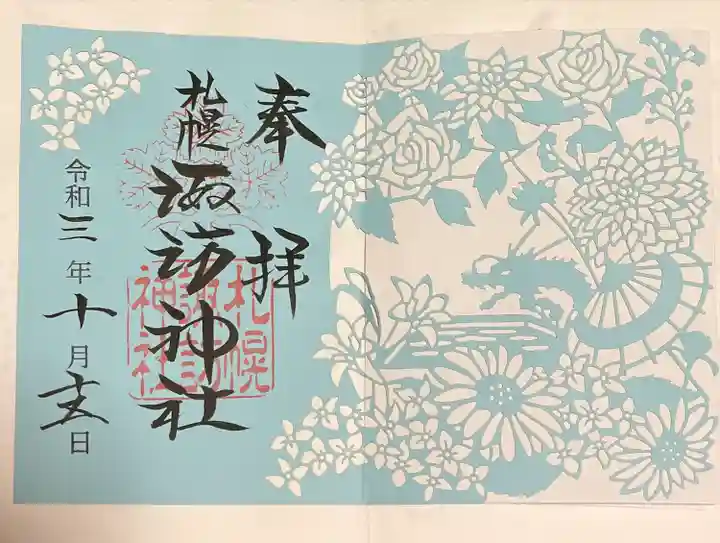 奉拝
札幌
諏訪神社
札幌
諏訪
神社
令和三年十月十五日